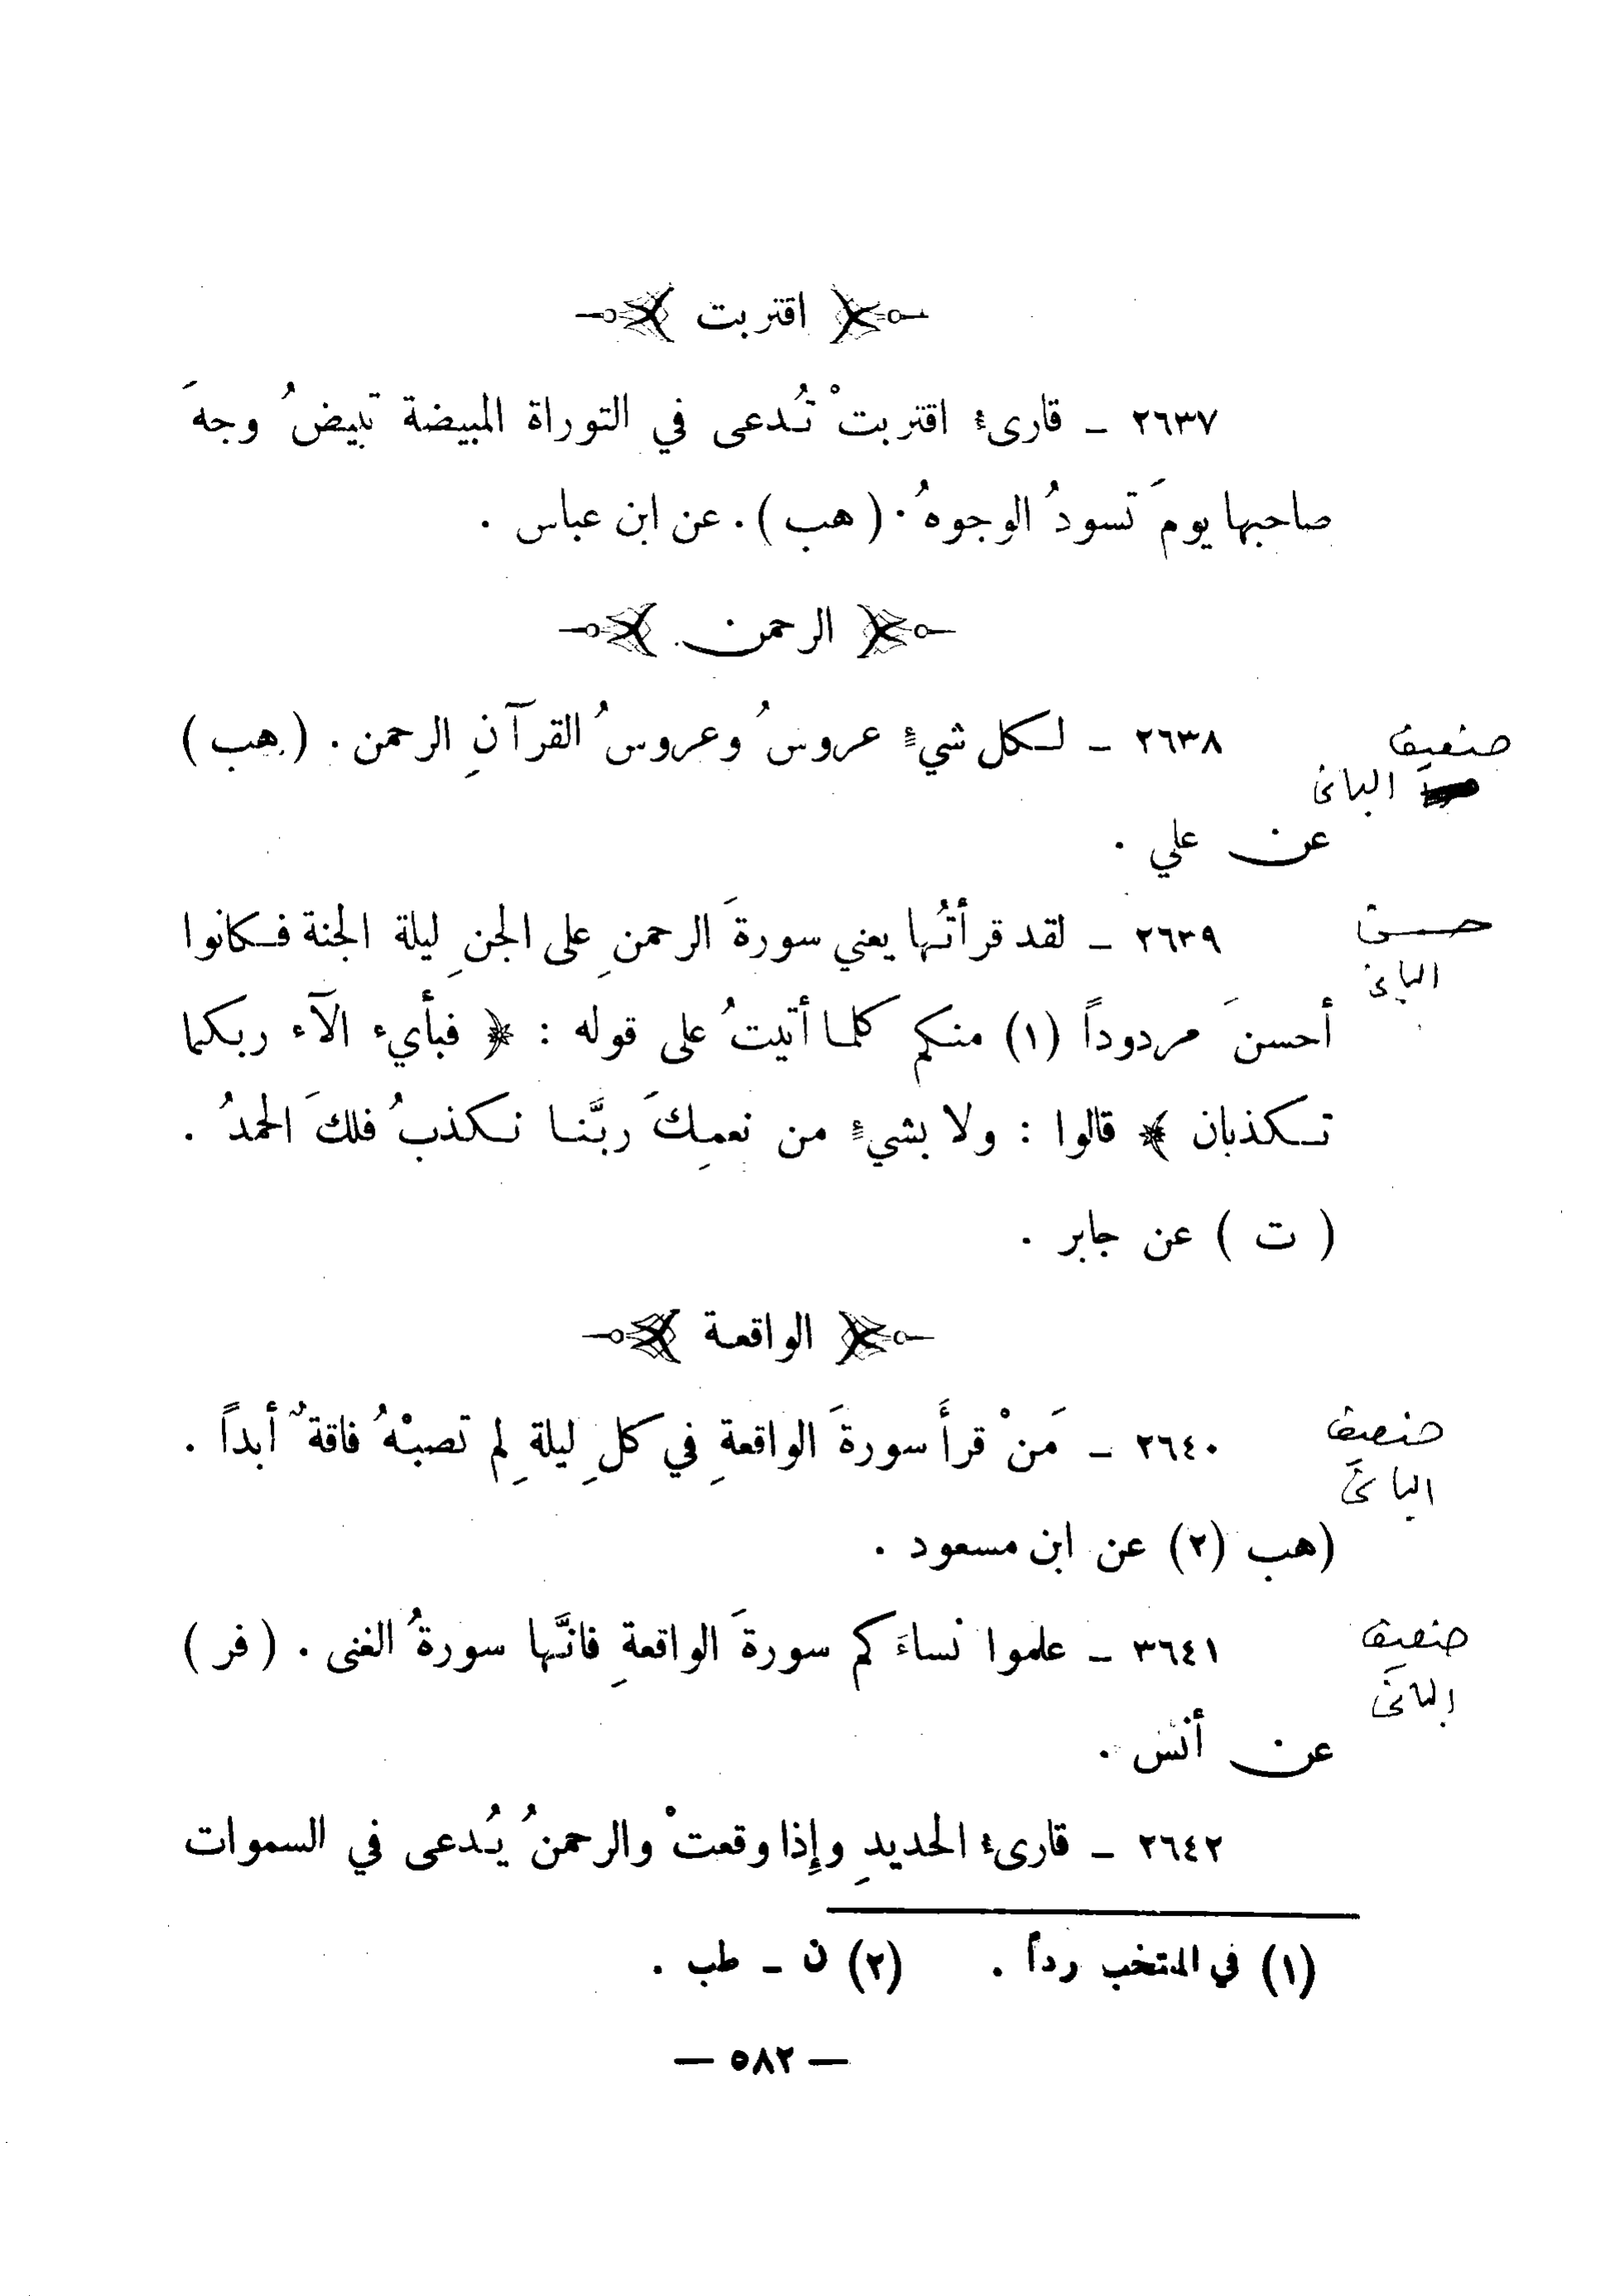 اقتربت
٢٦٣٧ - قارىء اقتربتْ تُدعى في التوراة المبيضة تبيضُ وجهَ
صاحبها يومَ تسودُ الوجوهُ . ( هب ) . عن ابن عباس .
الرحمن
٢٦٣٨ - لكل شيءٍ عروسُ وعروسُ القرآنِ الرحمن . ( هب )
ضعيف
البانى
عن علي .
٢٦٣٩ - لقد قرأتُها يعني سورةَ الرحمنِ على الجنِ ليلة الجنة فكانوا
حسن
البانى
أحسنَ مردوداً (١) منكم كلما أتيتُ على قوله : ﴿ فبأيء الآء ربكما
تكذبان ﴾ قالوا : ولا بشيءٍ من نعمِكَ ربَّنا نكذبُ فلكَ الحمدُ .
( ت ) عن جابر .
الواقعة
٢٦٤٠ - مَنْ قرأَ سورةَ الواقعةِ في كلِ ليلةِ لم تصبْهُ فاقةٌ أبداً .
ضعيف
البانى
(هب (٢) عن ابن مسعود .
٣٦٤١ - علموا نساءَكم سورةَ الواقعةِ فانَّها سورةُ الغنى . ( فر )
ضعيف
البانى
عن أنس .
٢٦٤٢ - قارىء الحديدِ وإِذا وقعتْ والرحمنُ يُدعى في السموات
(١) في المنتخب رداً . (٢) ن - طب .
— ٥٨٢ —